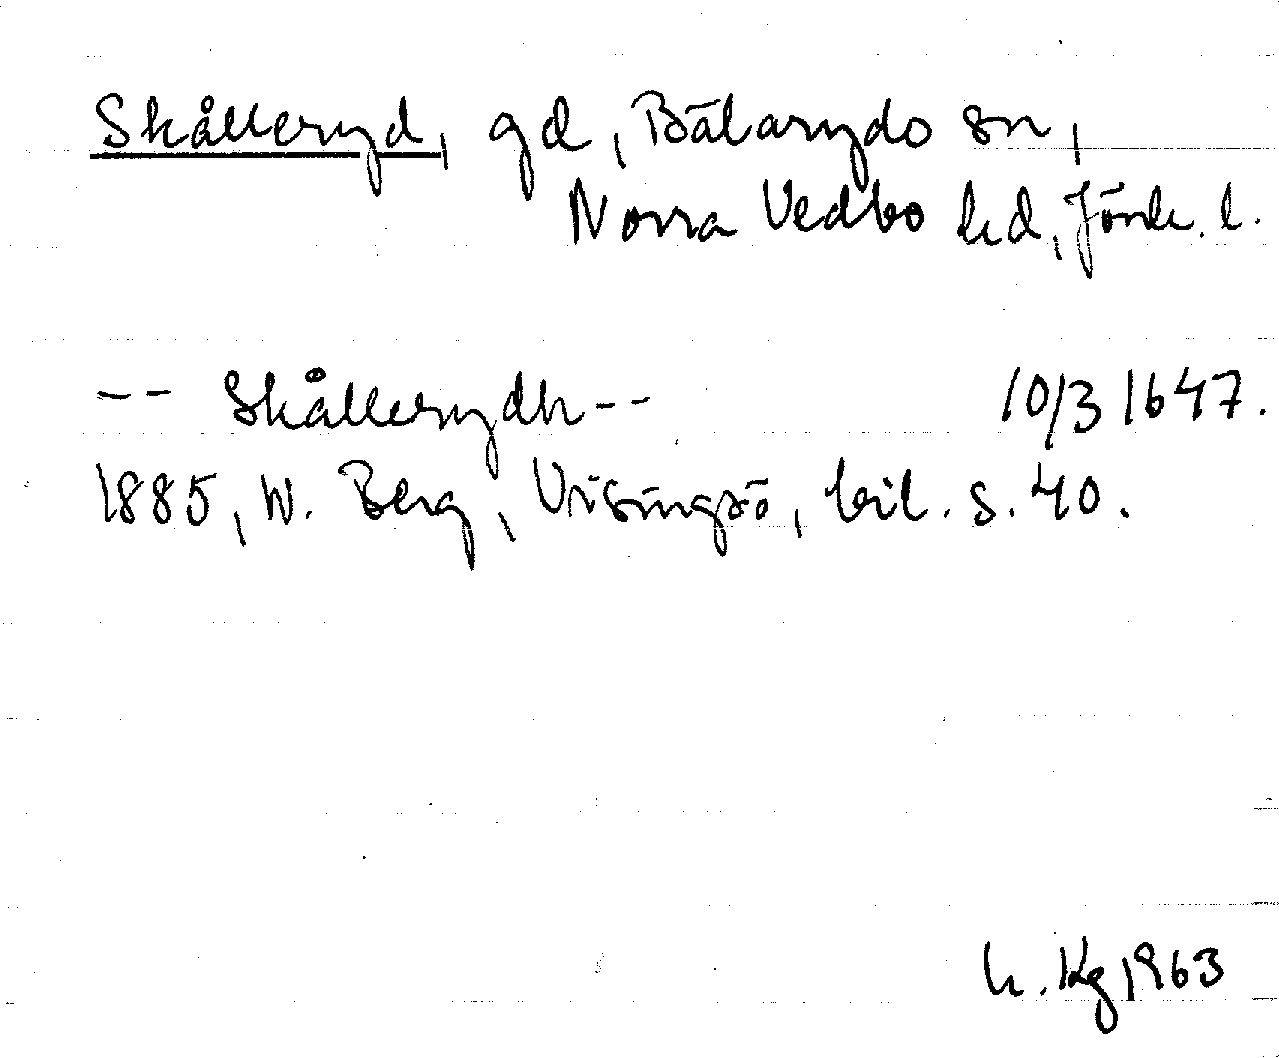 Skålleryd, gd, Bälaryds sn,
Norra Vedbo hd, Jönk. l.
-- Skållerydh -- 10/3 1647.
1885, W. Berg, Visingsö, bil. s. 40.
h. Kg 1963